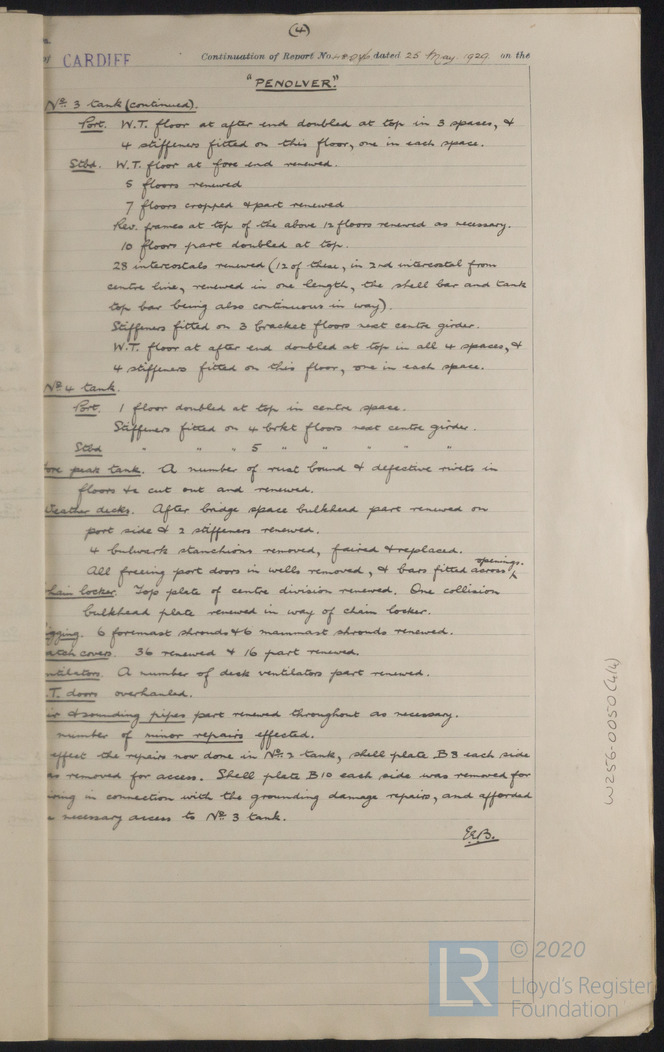 (4)
CARDIFF Continuation of Report No. dated 25 May 1929 on the
"PENOLVER."
No. 3 tank (continued).
Port. W.T. floor at after end doubled at top in 3 spaces, &
4 stiffeners fitted on this floor, one in each space.
Stbd. W.T. floor at fore end renewed.
5 floors renewed
7 floors cropped & part renewed
Rev. frames at top of the above 12 floors renewed as necessary.
10 floors part doubled at top.
28 intercostals renewed (12 of these, in 2nd intercostal from
centre line, renewed in one length, the shell bar and tank
top bar being also continuous in way).
Stiffeners fitted on 3 bracket floors next centre girder.
W.T. floor at after end doubled at top in all 4 spaces, &
4 stiffeners fitted on this floor, one in each space.
No. 4 tank.
Port. 1 floor doubled at top in centre space.
Stiffeners fitted on 4 brkt floors next centre girder.
Stbd " " " 5 " " " " "
ore peak tank. A number of rust bound & defective rivets in
floors &c cut out and renewed.
eather decks. After bridge space bulkhead part renewed on
port side & 2 stiffeners renewed.
4 bulwark stanchions removed, faired & replaced.
All freeing port doors in wells removed, & bars fitted across openings.
hain locker. Top plate of centre division renewed. One collision
bulkhead plate renewed in way of chain locker.
igging. 6 foremast shrouds & 6 mainmast shrouds renewed.
atch covers. 36 renewed & 16 part renewed.
ntilators. A number of deck ventilators part renewed.
.T. doors overhauled.
ir & sounding pipes part renewed throughout as necessary.
number of minor repairs effected.
effect the repairs now done in No. 2 tank, shell plate B8 each side
as removed for access. Shell plate B10 each side was removed for
iring in connection with the grounding damage repairs, and afforded
e necessary access to No. 3 tank.
E.E.B.
W256-0050(4/4)
LR
© 2020
Lloyd's Register
Foundation